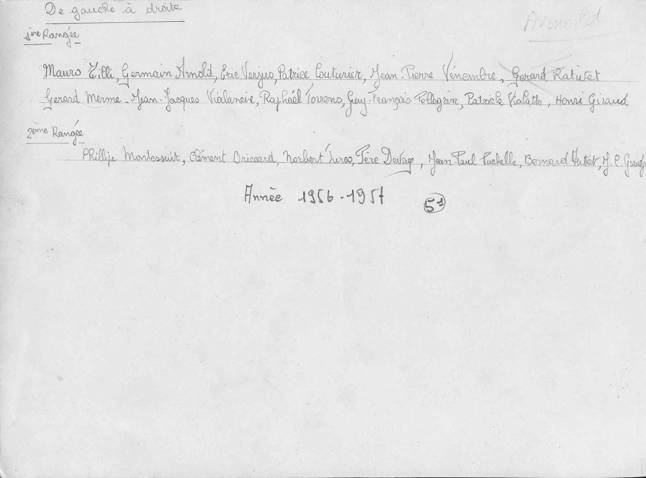 De gauche à droite
Arnold
1ère Rangée
Mauro Tilli, Germain Arnold, Eric Verjus, Patrice Couturier, Jean-Pierre Vénembre, Gerard Ratictet
Gerard Merme - Jean-Jacques Vialaneix, Raphaël Torreno, Guy-François Pellegrin, Patrick Paletto, Henri Giraud
2ème Rangée
Phillipe Montessuit, Clément Dricard, Norbert Turco, Père Davage, Jean Paul Pachelle, Bernard Hatot, J. C.
Année 1956-1957 51